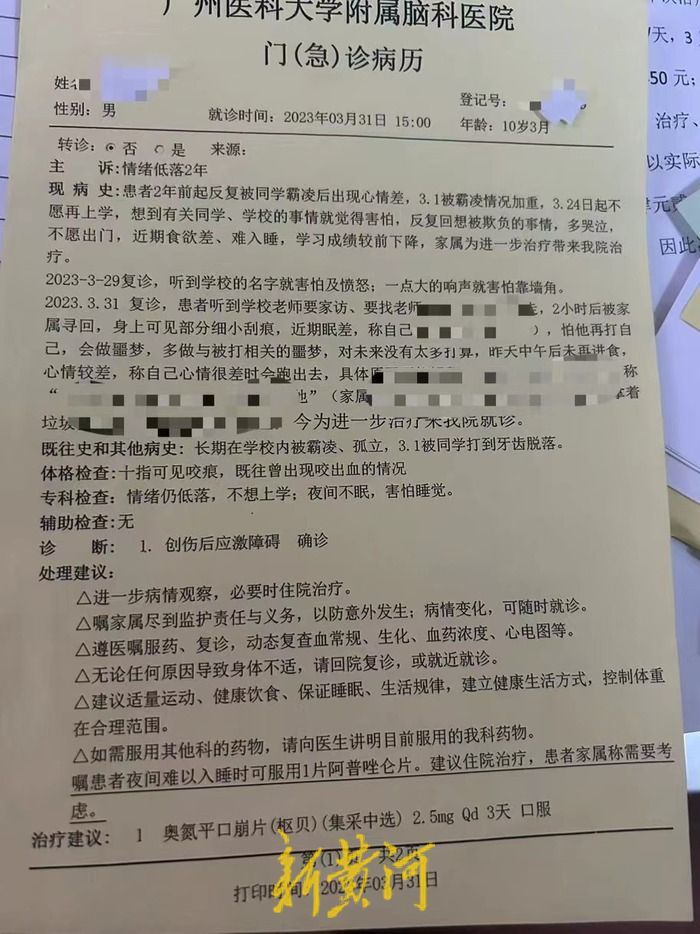 广州医科大学附属脑科医院
门(急)诊病历
姓名
性别: 男
就诊时间: 2023年03月31日 15:00
登记号:
年龄: 10岁3月
转诊: 否 是 来源:
主 诉:情绪低落2年
现 病 史:患者2年前起反复被同学霸凌后出现心情差，3.1被霸凌情况加重，3.24日起不
愿再上学，想到有关同学、学校的事情就觉得害怕，反复回想被欺负的事情，多哭泣，
不愿出门，近期食欲差、难入睡，学习成绩较前下降，家属为进一步治疗带来我院治
疗。
2023-3-29复诊，听到学校的名字就害怕及愤怒；一点大的响声就害怕靠墙角。
2023.3.31 复诊，患者听到学校老师要家访、要找老师 ，2小时后被家
属寻回，身上可见部分细小刮痕，近期眠差，称自己 ），怕他再打自
己，会做噩梦，多做与被打相关的噩梦，对未来没有太多打算，昨天中午后未再进食，
心情较差，称自己心情很差时会跑出去，具体 称
“ 他”（家属 拿着
垃圾 今为进一步治疗来我院就诊。
既往史和其他病史: 长期在学校内被霸凌、孤立，3.1被同学打到牙齿脱落。
体格检查: 十指可见咬痕，既往曾出现咬出血的情况
专科检查: 情绪仍低落，不想上学；夜间不眠，害怕睡觉。
辅助检查:无
诊 断: 1. 创伤后应激障碍 确诊
处理建议:
△进一步病情观察，必要时住院治疗。
△嘱家属尽到监护责任与义务，以防意外发生；病情变化，可随时就诊。
△遵医嘱服药、复诊，动态复查血常规、生化、血药浓度、心电图等。
△无论任何原因导致身体不适，请回院复诊，或就近就诊。
△建议适量运动、健康饮食、保证睡眠、生活规律，建立健康生活方式，控制体重
在合理范围。
△如需服用其他科的药物，请向医生讲明目前服用的我科药物。
嘱患者夜间难以入睡时可服用1片阿普唑仑片。建议住院治疗，患者家属称需要考
虑。
治疗建议: 1 奥氮平口崩片(枢贝)(集采中选) 2.5mg Qd 3天 口服
第(1)页 共2页
打印时间: 2023年03月31日
新黄河
天，3
50 元；
治疗、
以实际
元
因此